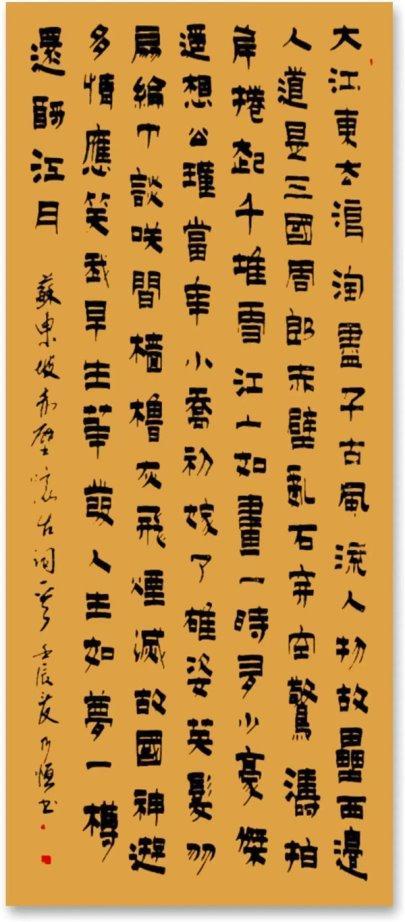 大江東去浪淘盡千古風流人物故壘西邊
人道是三國周郎赤壁亂石穿空驚濤拍
岸捲起千堆雪江山如畫一時多少豪傑
遥想公瑾當年小喬初嫁了雄姿英髮羽
扇綸巾談咲間檣櫓灰飛煙滅故國神遊
多情應笑我早生華發人生如夢一樽
還酹江月
蘇東坡赤壁懷古詞一首 壬辰夏乃恒书